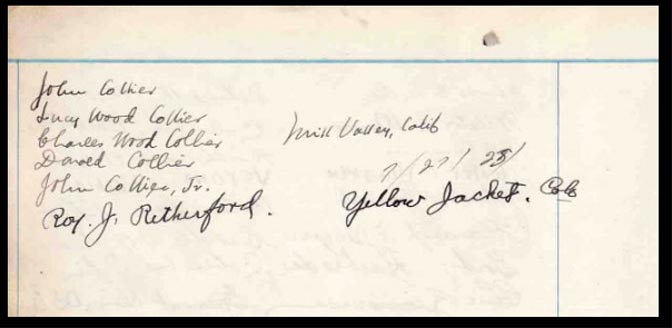 John Collier
Lucy Wood Collier
Charles Wood Collier Mill Valley, Calif
Donald Collier
John Collier, Jr. 7/27/23/
Roy. J. Retherford. Yellow Jacket. Colo